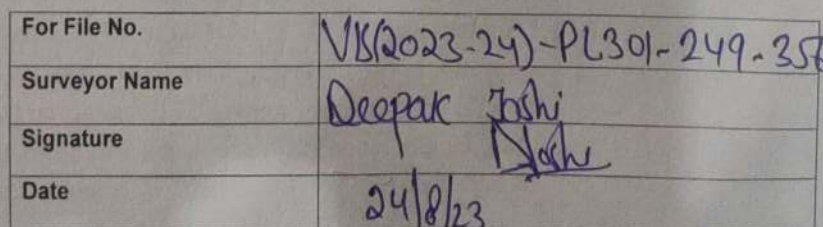 For File No. VIS(2023-24)-PL301-249-356
Surveyor Name Deepak Joshi
Signature DJoshi
Date 24/8/23